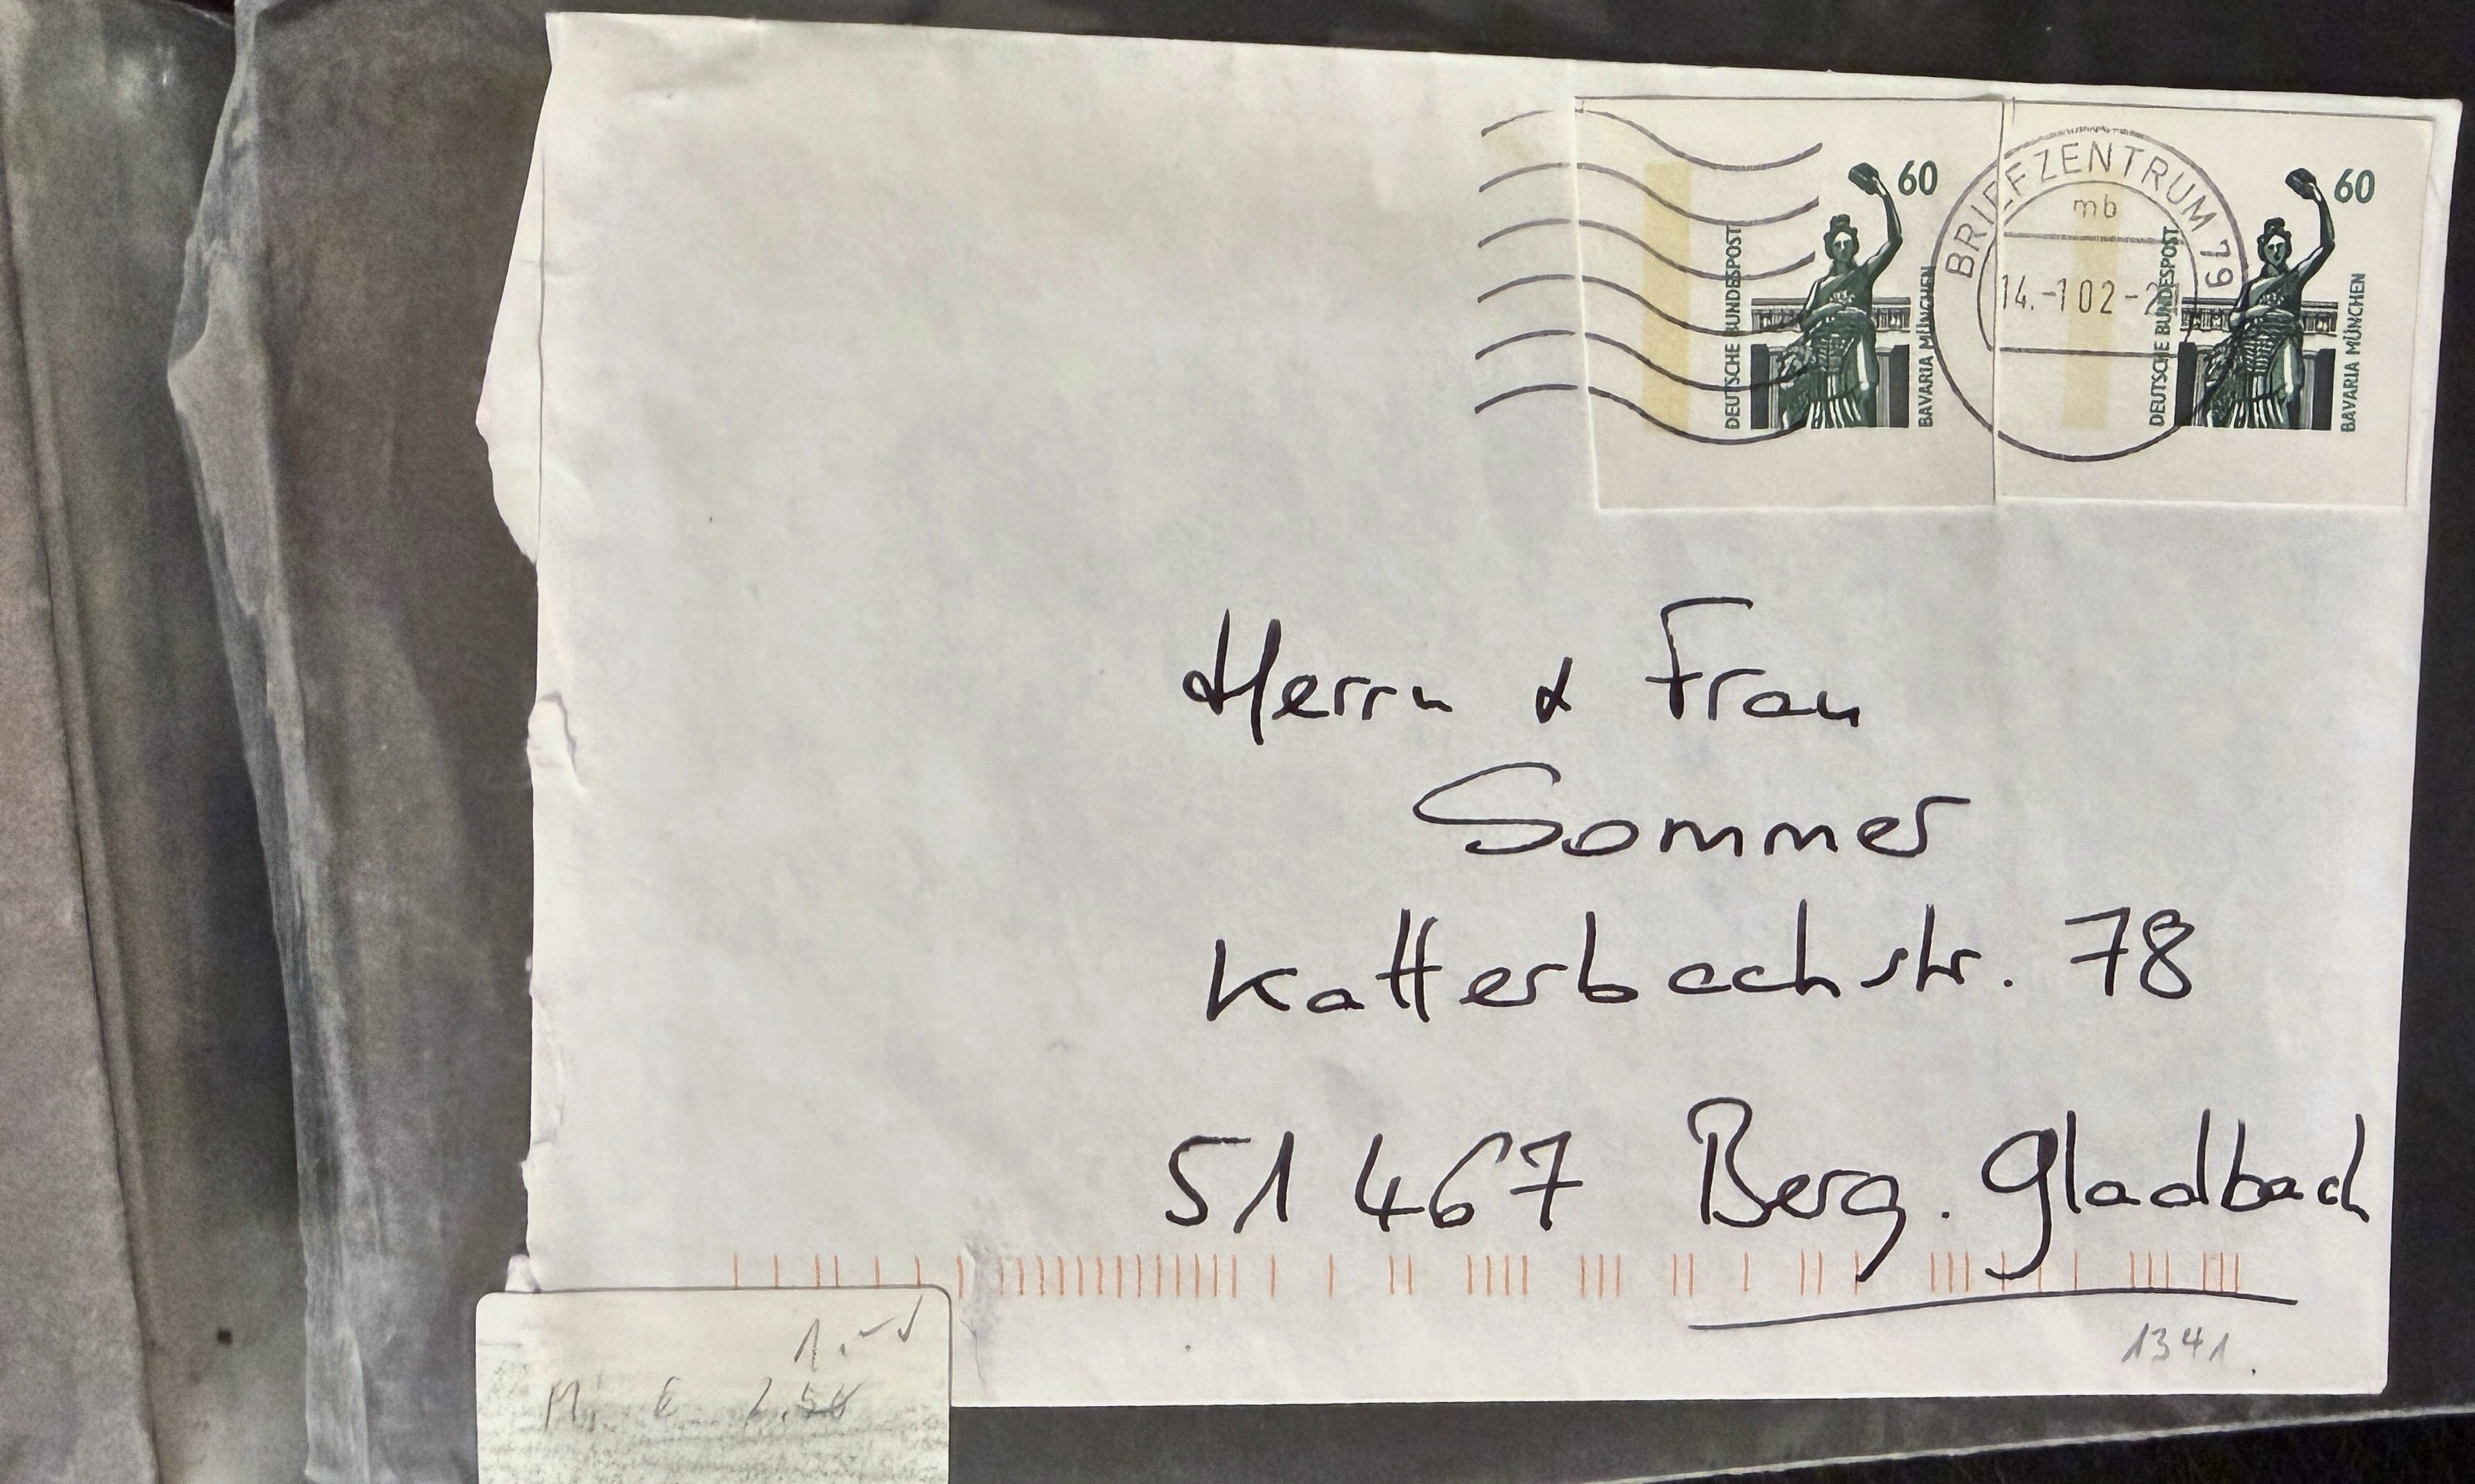 60
DEUTSCHE BUNDESPOST
BAVARIA MÜNCHEN
BRIEFZENTRUM 79
mb
14.-1 02-2
60
DEUTSCHE BUNDESPOST
BAVARIA MÜNCHEN
Herrn & Frau
Sommer
Katterbachstr. 78
51467 Berg. Gladbach
1341.
1.-
Mi €